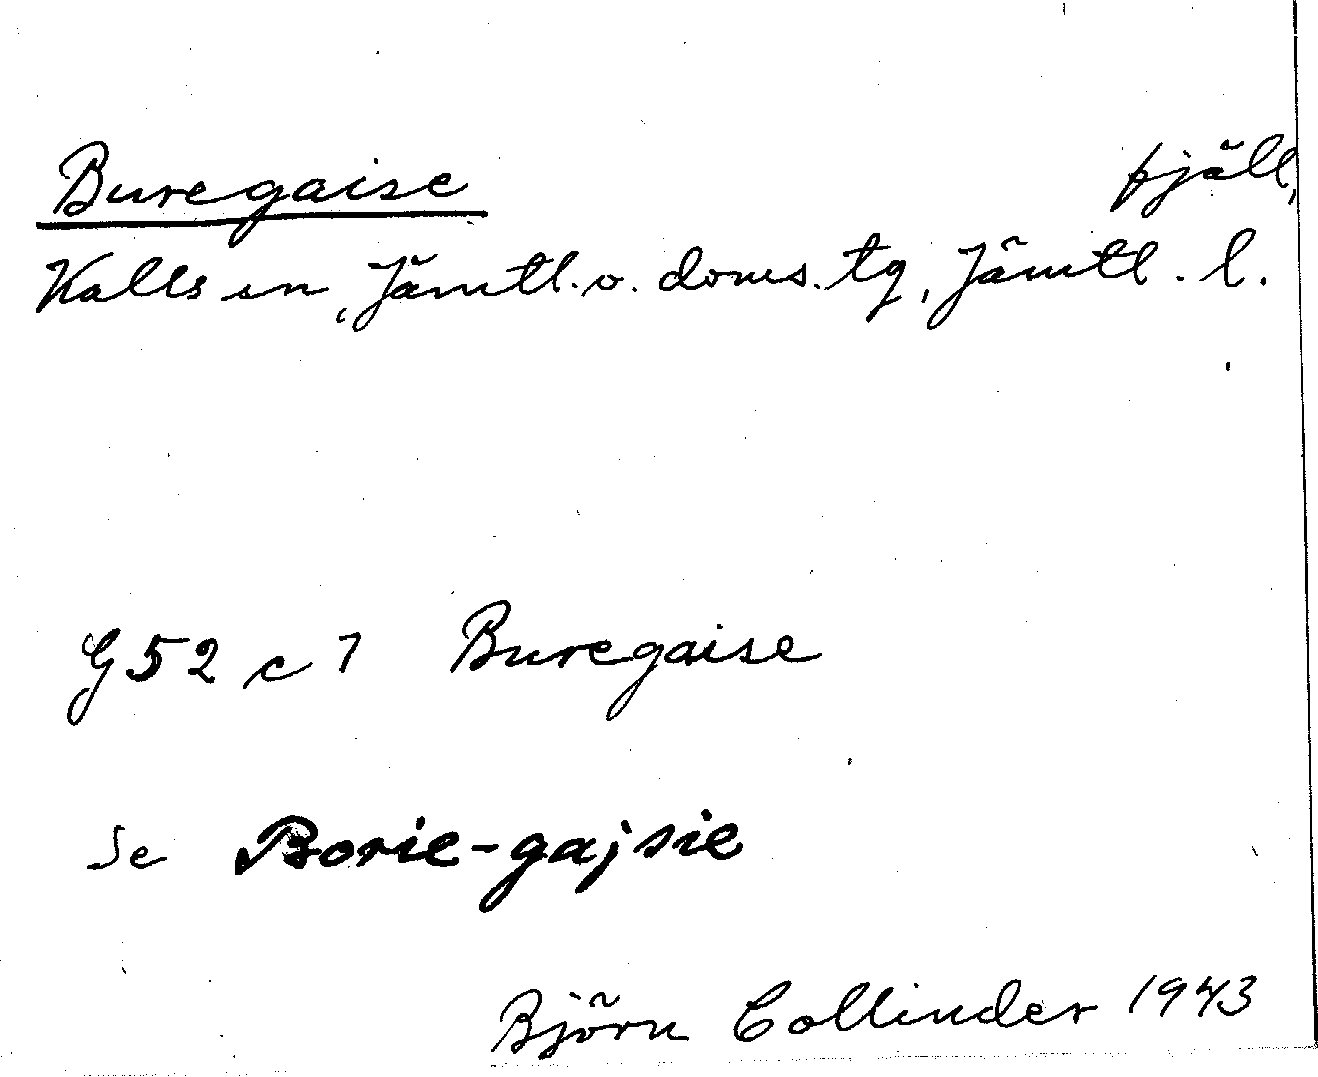 Buregaise fjäll,
Kalls sn, Jämtl. v. doms. tg, Jämtl. l.
G 52 c 7 Buregaise
Se Borie-gajsie
Björn Collinder 1943